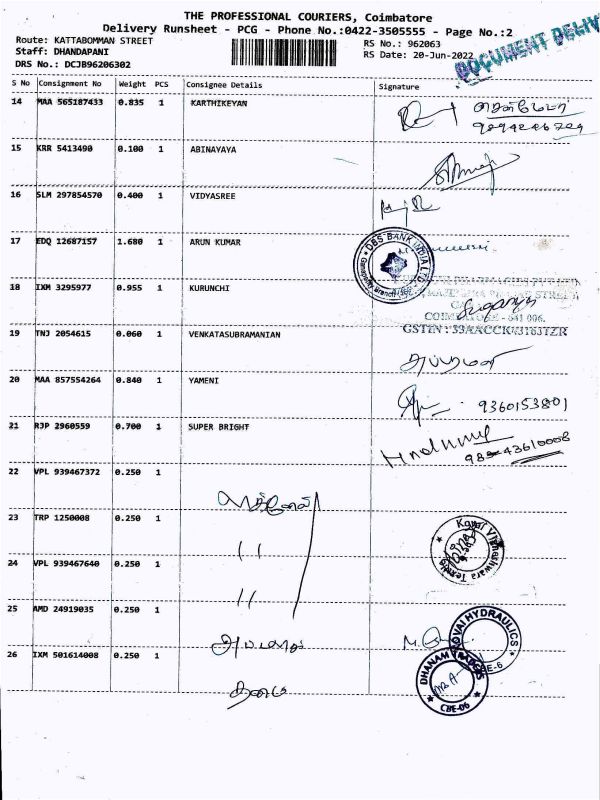 THE PROFESSIONAL COURIERS, Coimbatore
Delivery Runsheet - PCG - Phone No.:0422-3505555 - Page No.:2
Route: KATTABOMMAN STREET
RS No.: 962063
Staff: DHANDAPANI
RS Date: 20-Jun-2022
DRS No.: DCJB96206302
DOCUMENT DELIV
S No Consignment No Weight PCS Consignee Details Signature
14 MAA 565187433 0.835 1 KARTHIKEYAN
15 KRR 5413490 0.100 1 ABINAYAYA
16 SLM 297854570 0.400 1 VIDYASREE
17 EDQ 12687157 1.680 1 ARUN KUMAR
DBS BANK INDIA LTD
18 IXM 3295977 0.955 1 KURUNCHI
COIMBATORE - 641 006.
19 TNJ 2054615 0.060 1 VENKATASUBRAMANIAN
20 MAA 857554264 0.840 1 YAMENI
9360153801
21 RJP 2960559 0.700 1 SUPER BRIGHT
22 VPL 939467372 0.250 1
23 TRP 1250008 0.250 1
Kovai Vigneshwara
24 VPL 939467640 0.250 1
25 AMD 24919035 0.250 1
KOVAI HYDRAULICS
CBE-6
26 IXM 501614008 0.250 1
DHANAM
CBE-06